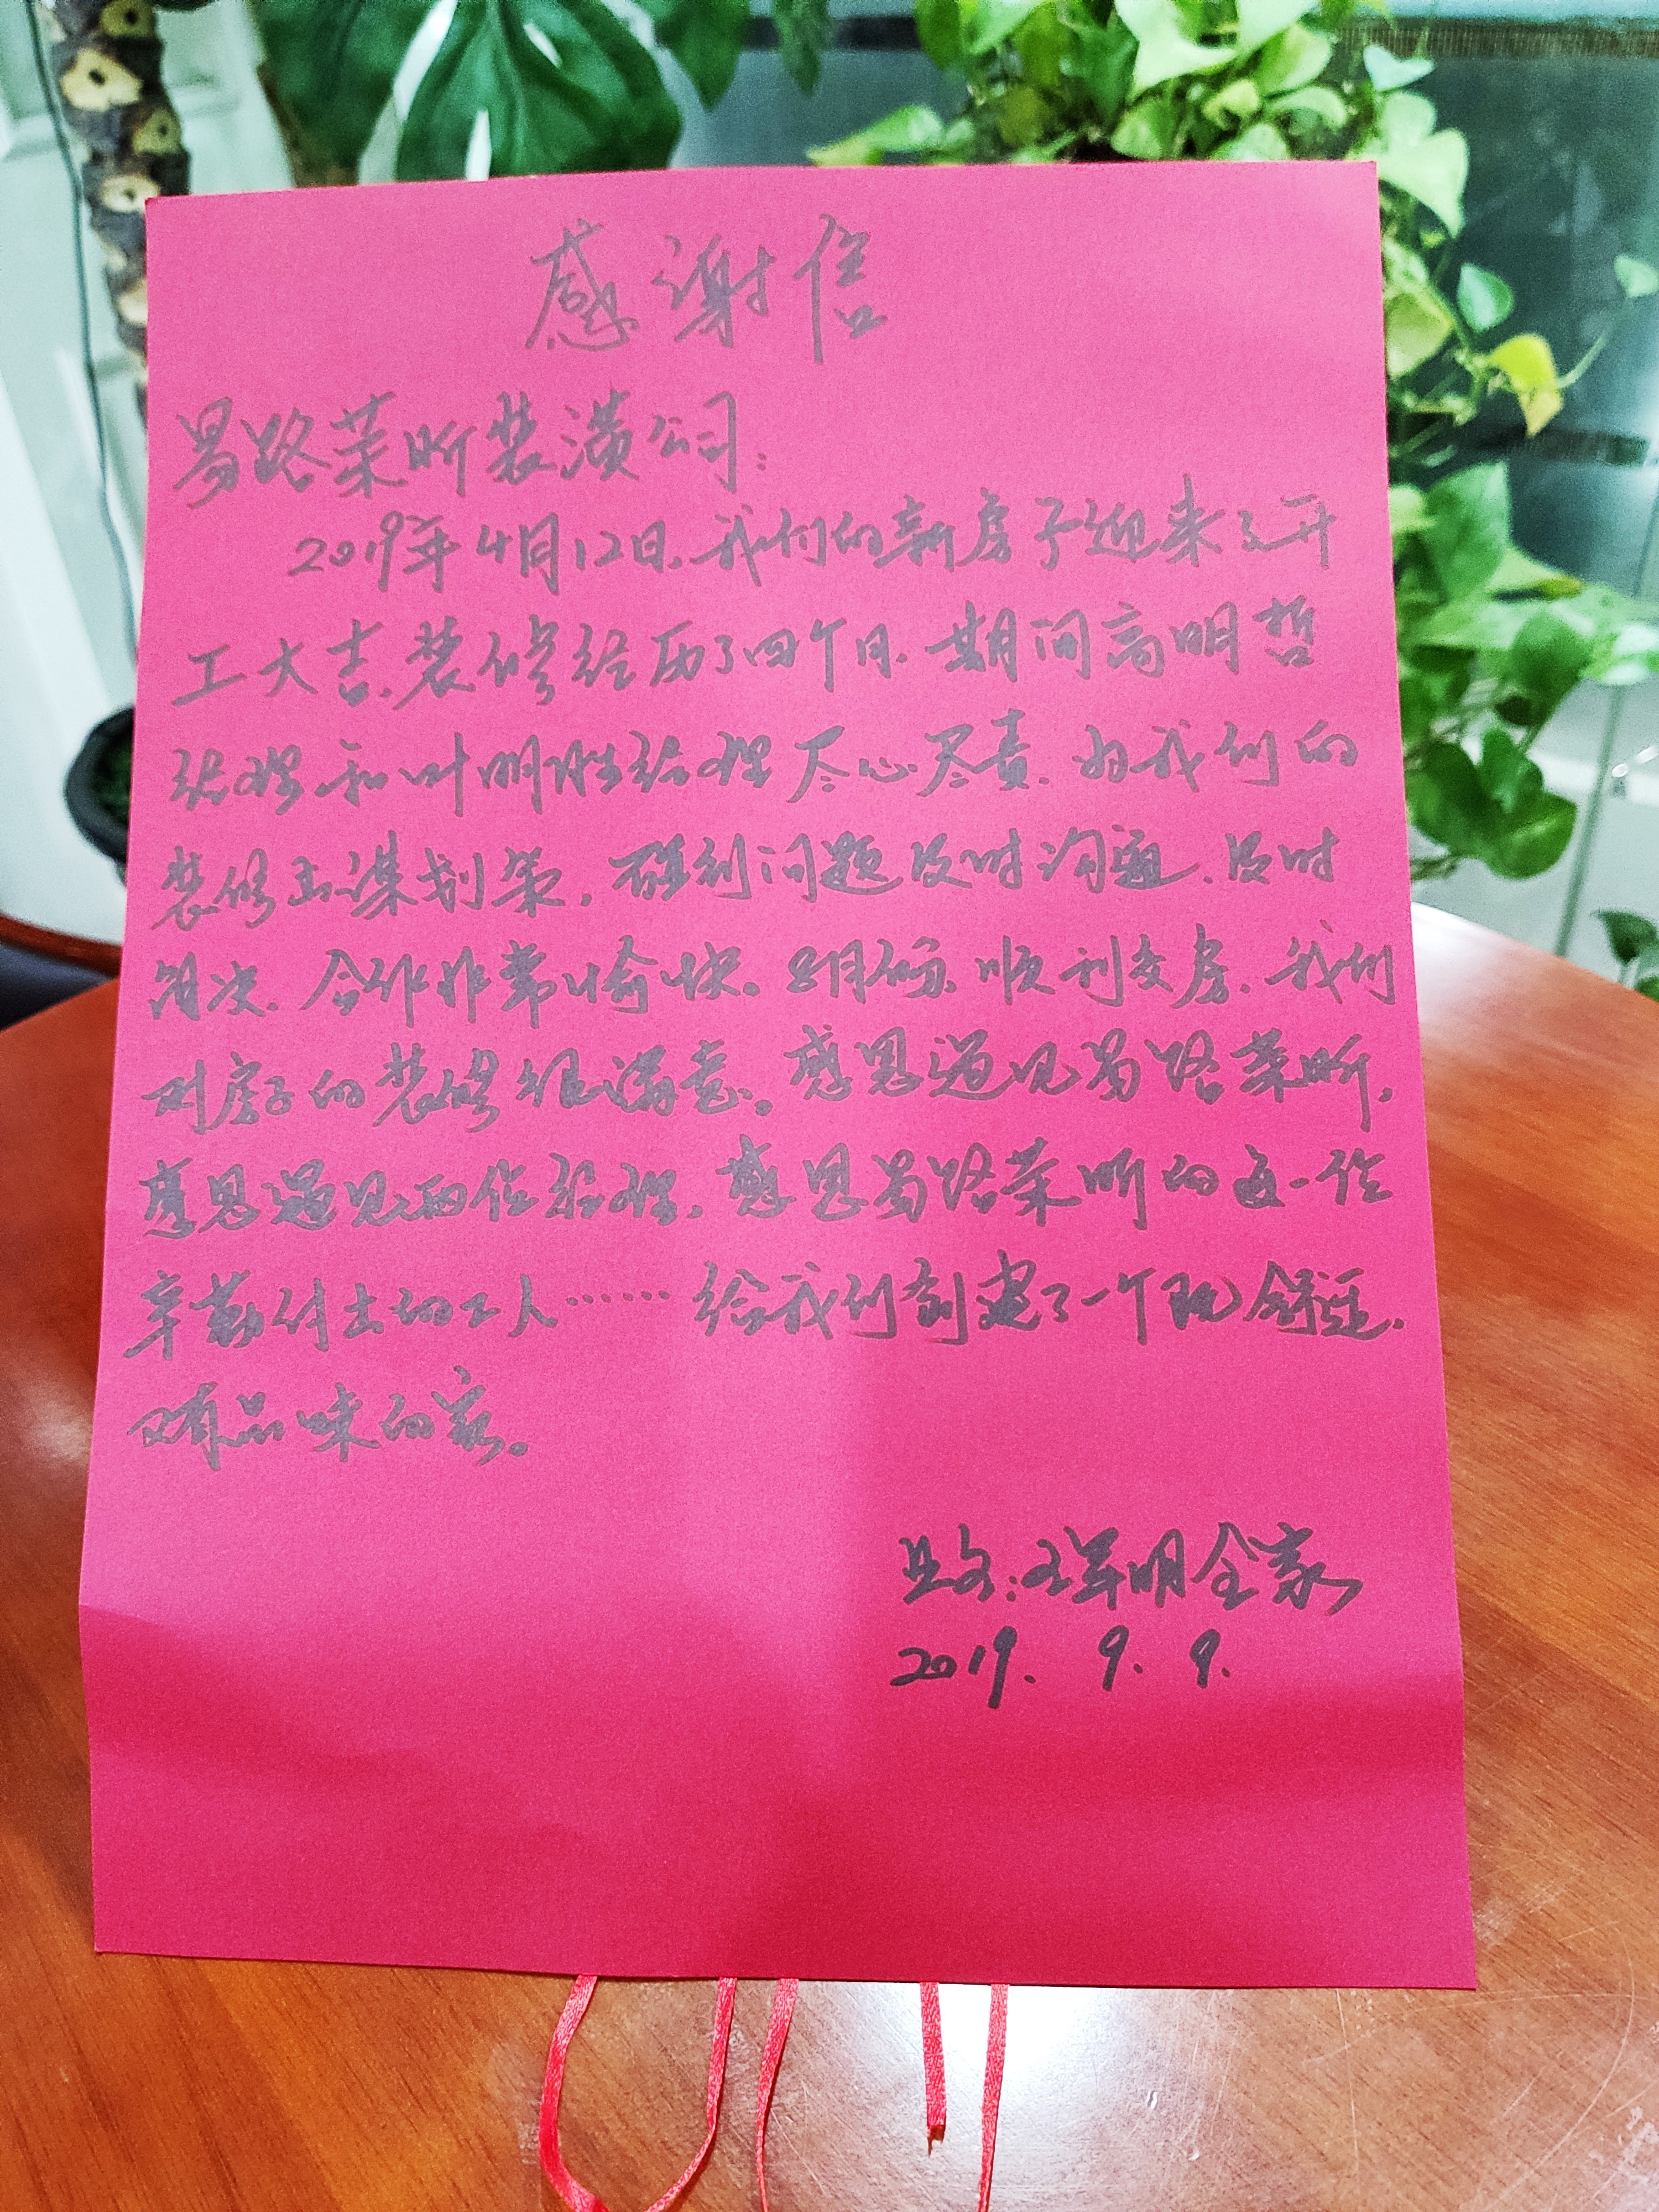 感谢信
易路荣昕装潢公司：
2019年4月12日，我们的新房子迎来了开
工大吉，装修经历了四个月，期间高明哲
经理和叶明胜经理尽心尽责，为我们的
装修出谋划策，碰到问题及时沟通，及时
解决，合作非常愉快。8月份，顺利交房，我们
对房子的装修很满意。感恩遇见易路荣昕，
感恩遇见两位经理，感恩易路荣昕的每一位
辛勤付出的工人……给我们创建了一个既舒适，
又有品味的家。
业主：王军明全家
2019. 9. 9.